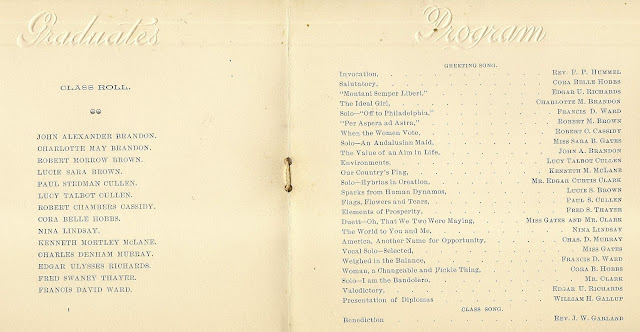 Graduates
CLASS ROLL.
JOHN ALEXANDER BRANDON.
CHARLOTTE MAY BRANDON.
ROBERT MORROW BROWN.
LUCIE SARA BROWN.
PAUL STEDMAN CULLEN.
LUCY TALBOT CULLEN.
ROBERT CHAMBERS CASSIDY.
CORA BELLE HOBBS.
NINA LINDSAY.
KENNETH MORTLEY McLANE.
CHARLES DENHAM MURRAY.
EDGAR ULYSSES RICHARDS.
FRED SWANEY THAYER.
FRANCIS DAVID WARD.
Program
GREETING SONG.
Invocation, REV. P. P. HUMMEL
Salutatory, CORA BELLE HOBBS
"Montani Semper Liberi," EDGAR U. RICHARDS
The Ideal Girl, CHARLOTTE M. BRANDON
Solo—"Off to Philadelphia," FRANCIS D. WARD
"Per Aspera ad Astra," ROBERT M. BROWN
When the Women Vote, ROBERT C. CASSIDY
Solo—An Andalusian Maid, MISS SARA B. GATES
The Value of an Aim in Life, JOHN A. BRANDON
Environments, LUCY TALBOT CULLEN
Our Country's Flag, KENNETH M. McLANE
Solo—Hybrias in Creation, MR. EDGAR CURTIS CLARK
Sparks from Human Dynamos, LUCIE S. BROWN
Flags, Flowers and Tears, PAUL S. CULLEN
Elements of Prosperity, FRED S. THAYER
Duett—Oh, That We Two Were Maying, MISS GATES AND MR. CLARK
The World to You and Me, NINA LINDSAY
America, Another Name for Opportunity, CHAS. D. MURRAY
Vocal Solo—Selected, MISS GATES
Weighed in the Balance, FRANCIS D. WARD
Woman, a Changeable and Fickle Thing, CORA B. HOBBS
Solo—I am the Bandolero, MR. CLARK
Valedictory, EDGAR U. RICHARDS
Presentation of Diplomas WILLIAM H. GALLUP
CLASS SONG.
Benediction REV. J. W. GARLAND